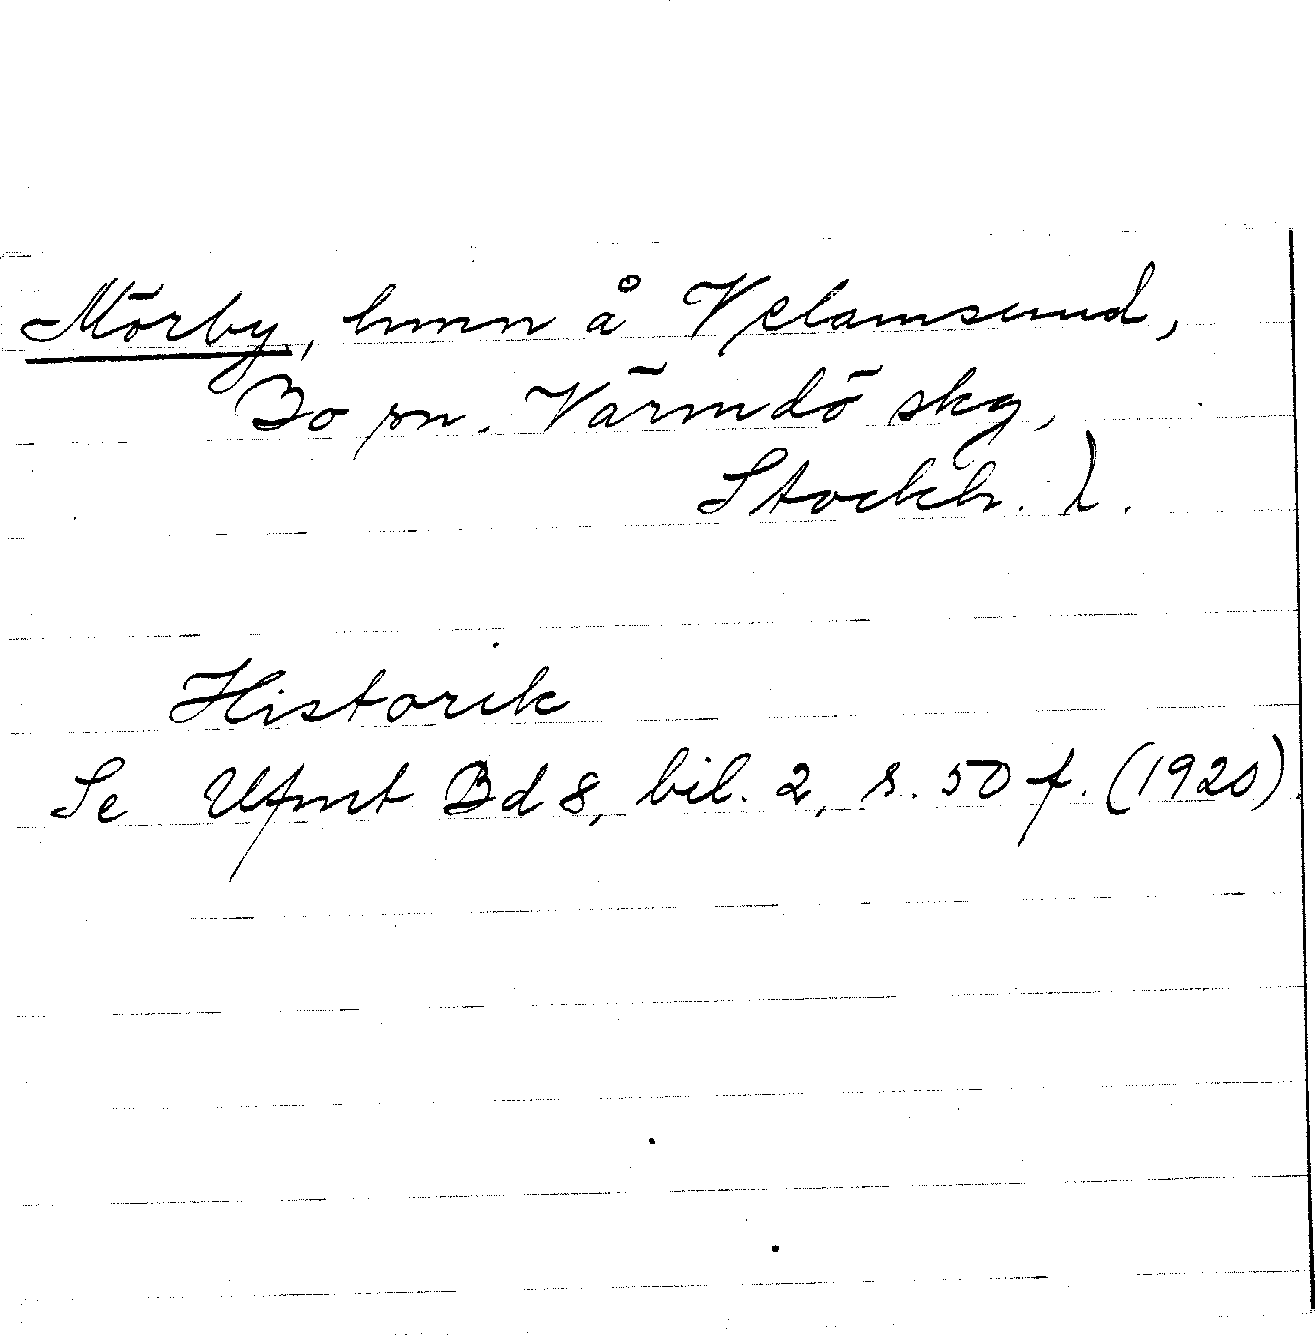 Mörby, hmn å Velamsund,
Bo sn. Värmdö skg,
Stockh. l.
Historik
Se Ufmt Bd 8, bil. 2, s. 50 f. (1920).